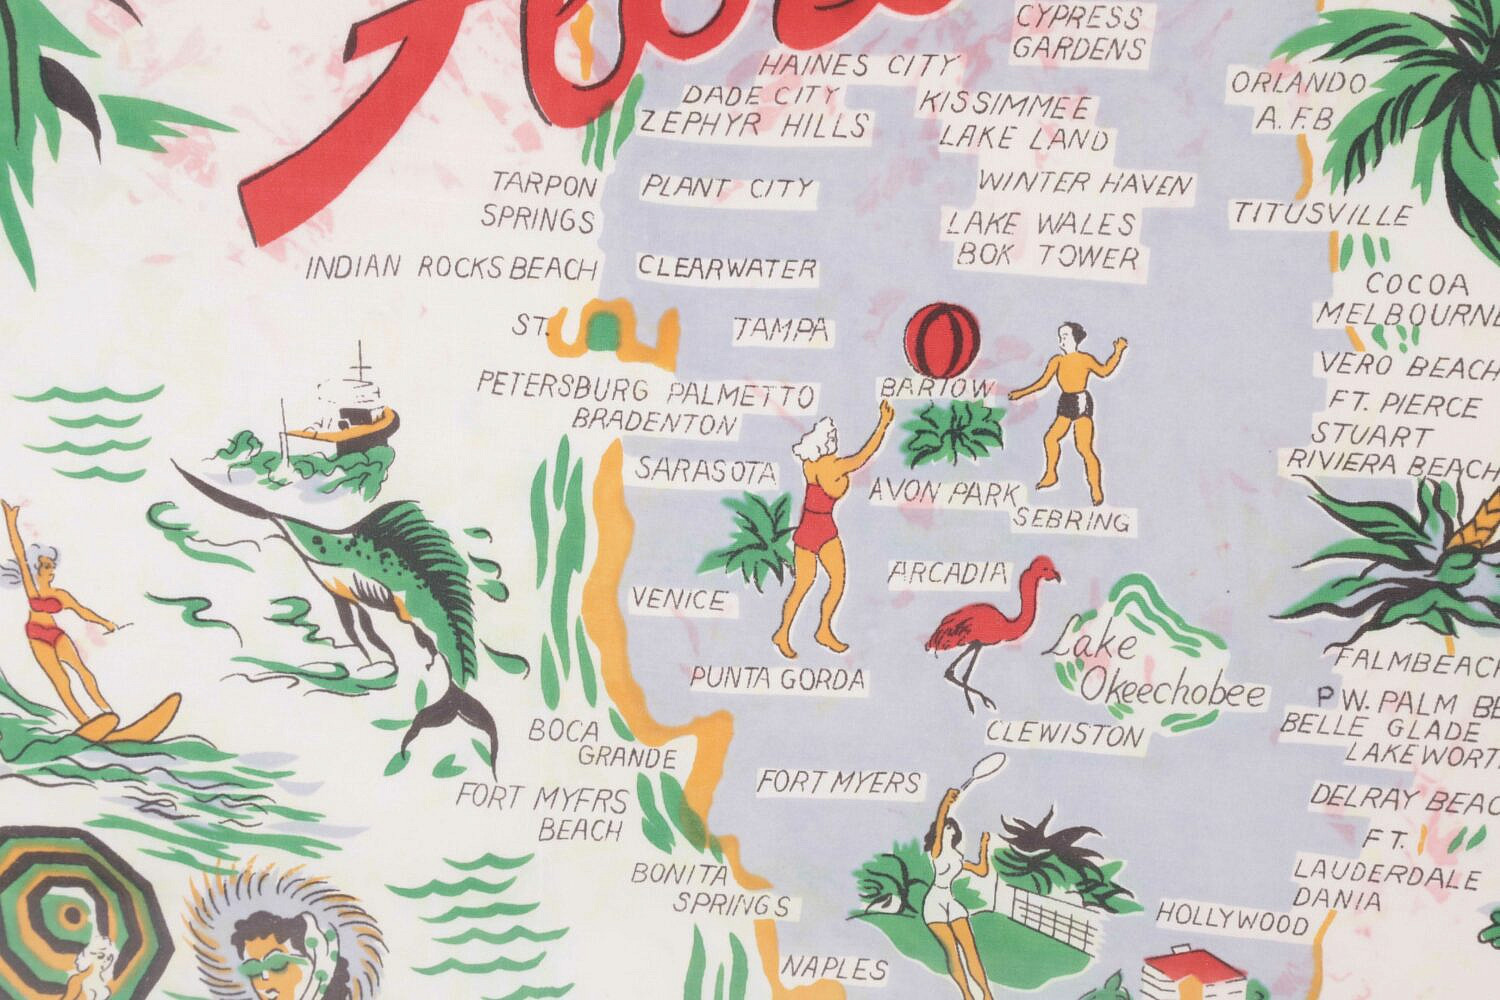 CYPRESS
GARDENS
HAINES CITY
DADE CITY
ZEPHYR HILLS
KISSIMMEE
LAKE LAND
ORLANDO
A.F.B
TARPON
SPRINGS
PLANT CITY
WINTER HAVEN
LAKE WALES
BOK TOWER
TITUSVILLE
INDIAN ROCKS BEACH
CLEARWATER
COCOA
MELBOURNE
ST.
TAMPA
PETERSBURG PALMETTO
BRADENTON
BARTOW
VERO BEACH
FT. PIERCE
STUART
RIVIERA BEACH
SARASOTA
AVON PARK
SEBRING
VENICE
ARCADIA
Lake
Okeechobee
PUNTA GORDA
FALMBEACH
P W. PALM BE
BELLE GLADE
LAKEWORT
BOCA
GRANDE
CLEWISTON
FORT MYERS
FORT MYFRS
BEACH
DELRAY BEAC
FT.
LAUDERDALE
DANIA
BONITA
SPRINGS
HOLLYWOOD
NAPLES